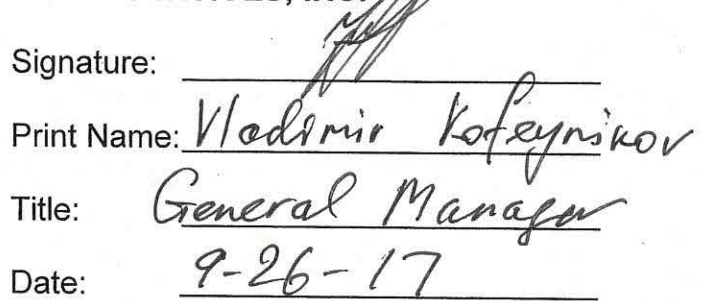 Signature:
Print Name: Vladimir Kofeynikov
Title: General Manager
Date: 9-26-17